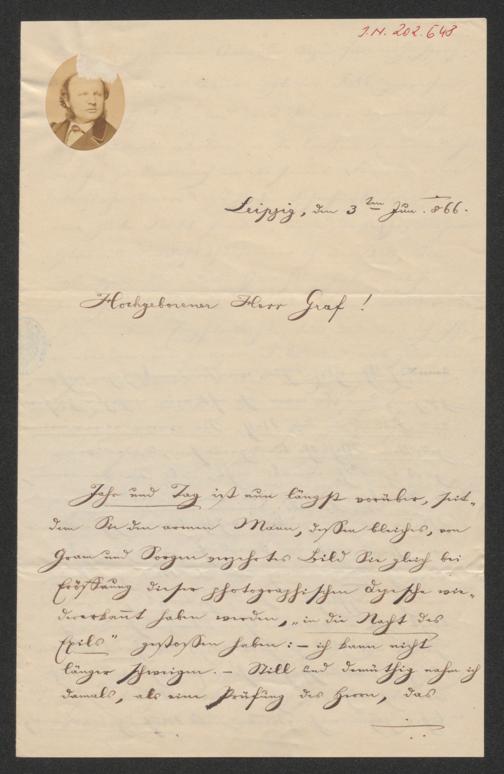 J.N. 202.648
Leipzig, den 3ten Jun. 866.
Hochgeborener Herr Graf !
Jahr und Tag ist nun längst vorüber, seit-
dem Sie den armen Mann, dessen bleiches, von
Gram und Sorgen verzehrtes Bild Sie gleich bei
Eröffnung dieser photographischen Depesche wie-
dererkannt haben werden, „in die Nacht des
Exils" gestossen haben: – ich kann nicht
länger schweigen. – Still und demüthig nahm ich
damals, als eine Prüfung des Herrn, das